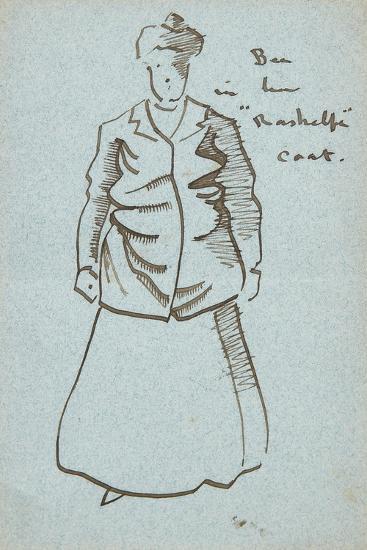 Bee
in her
"Raskelfe"
coat.